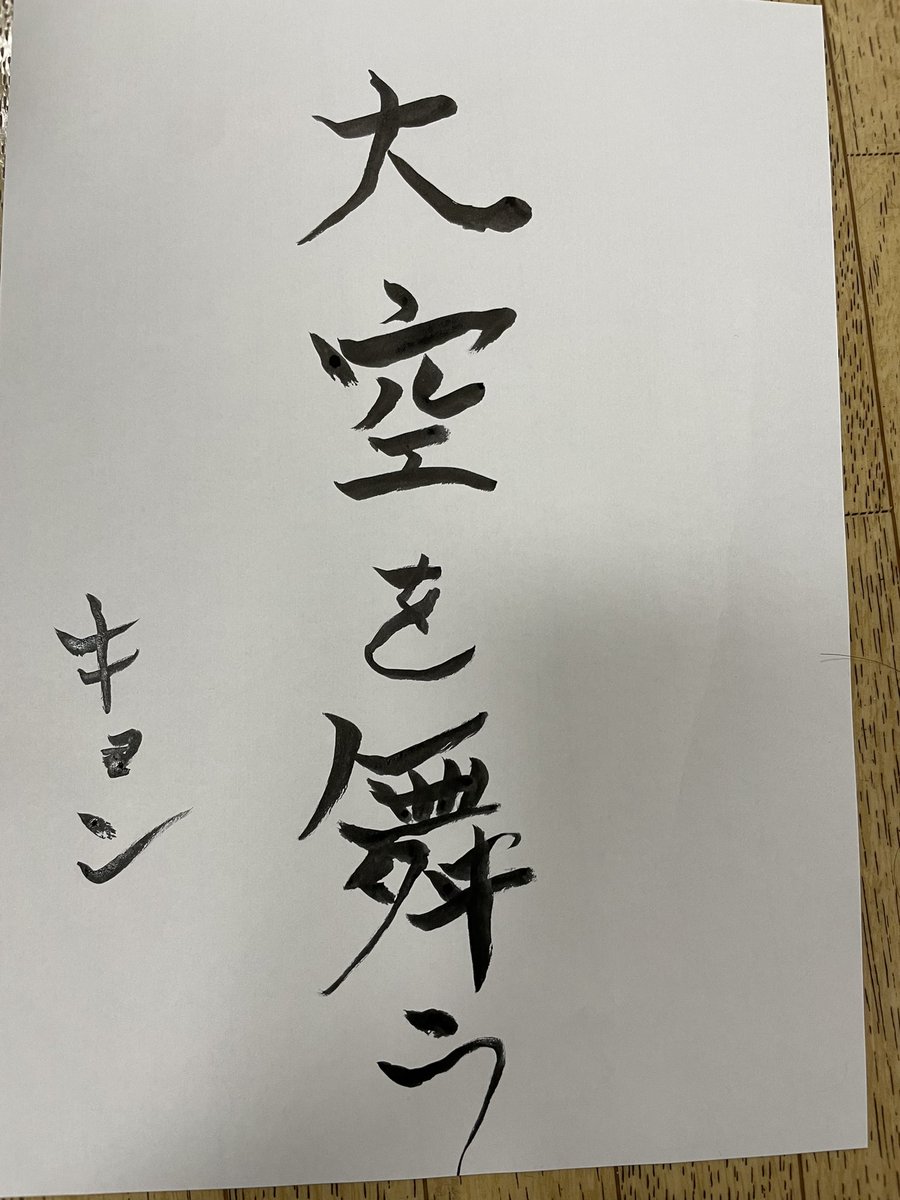 大空を舞う
キョン